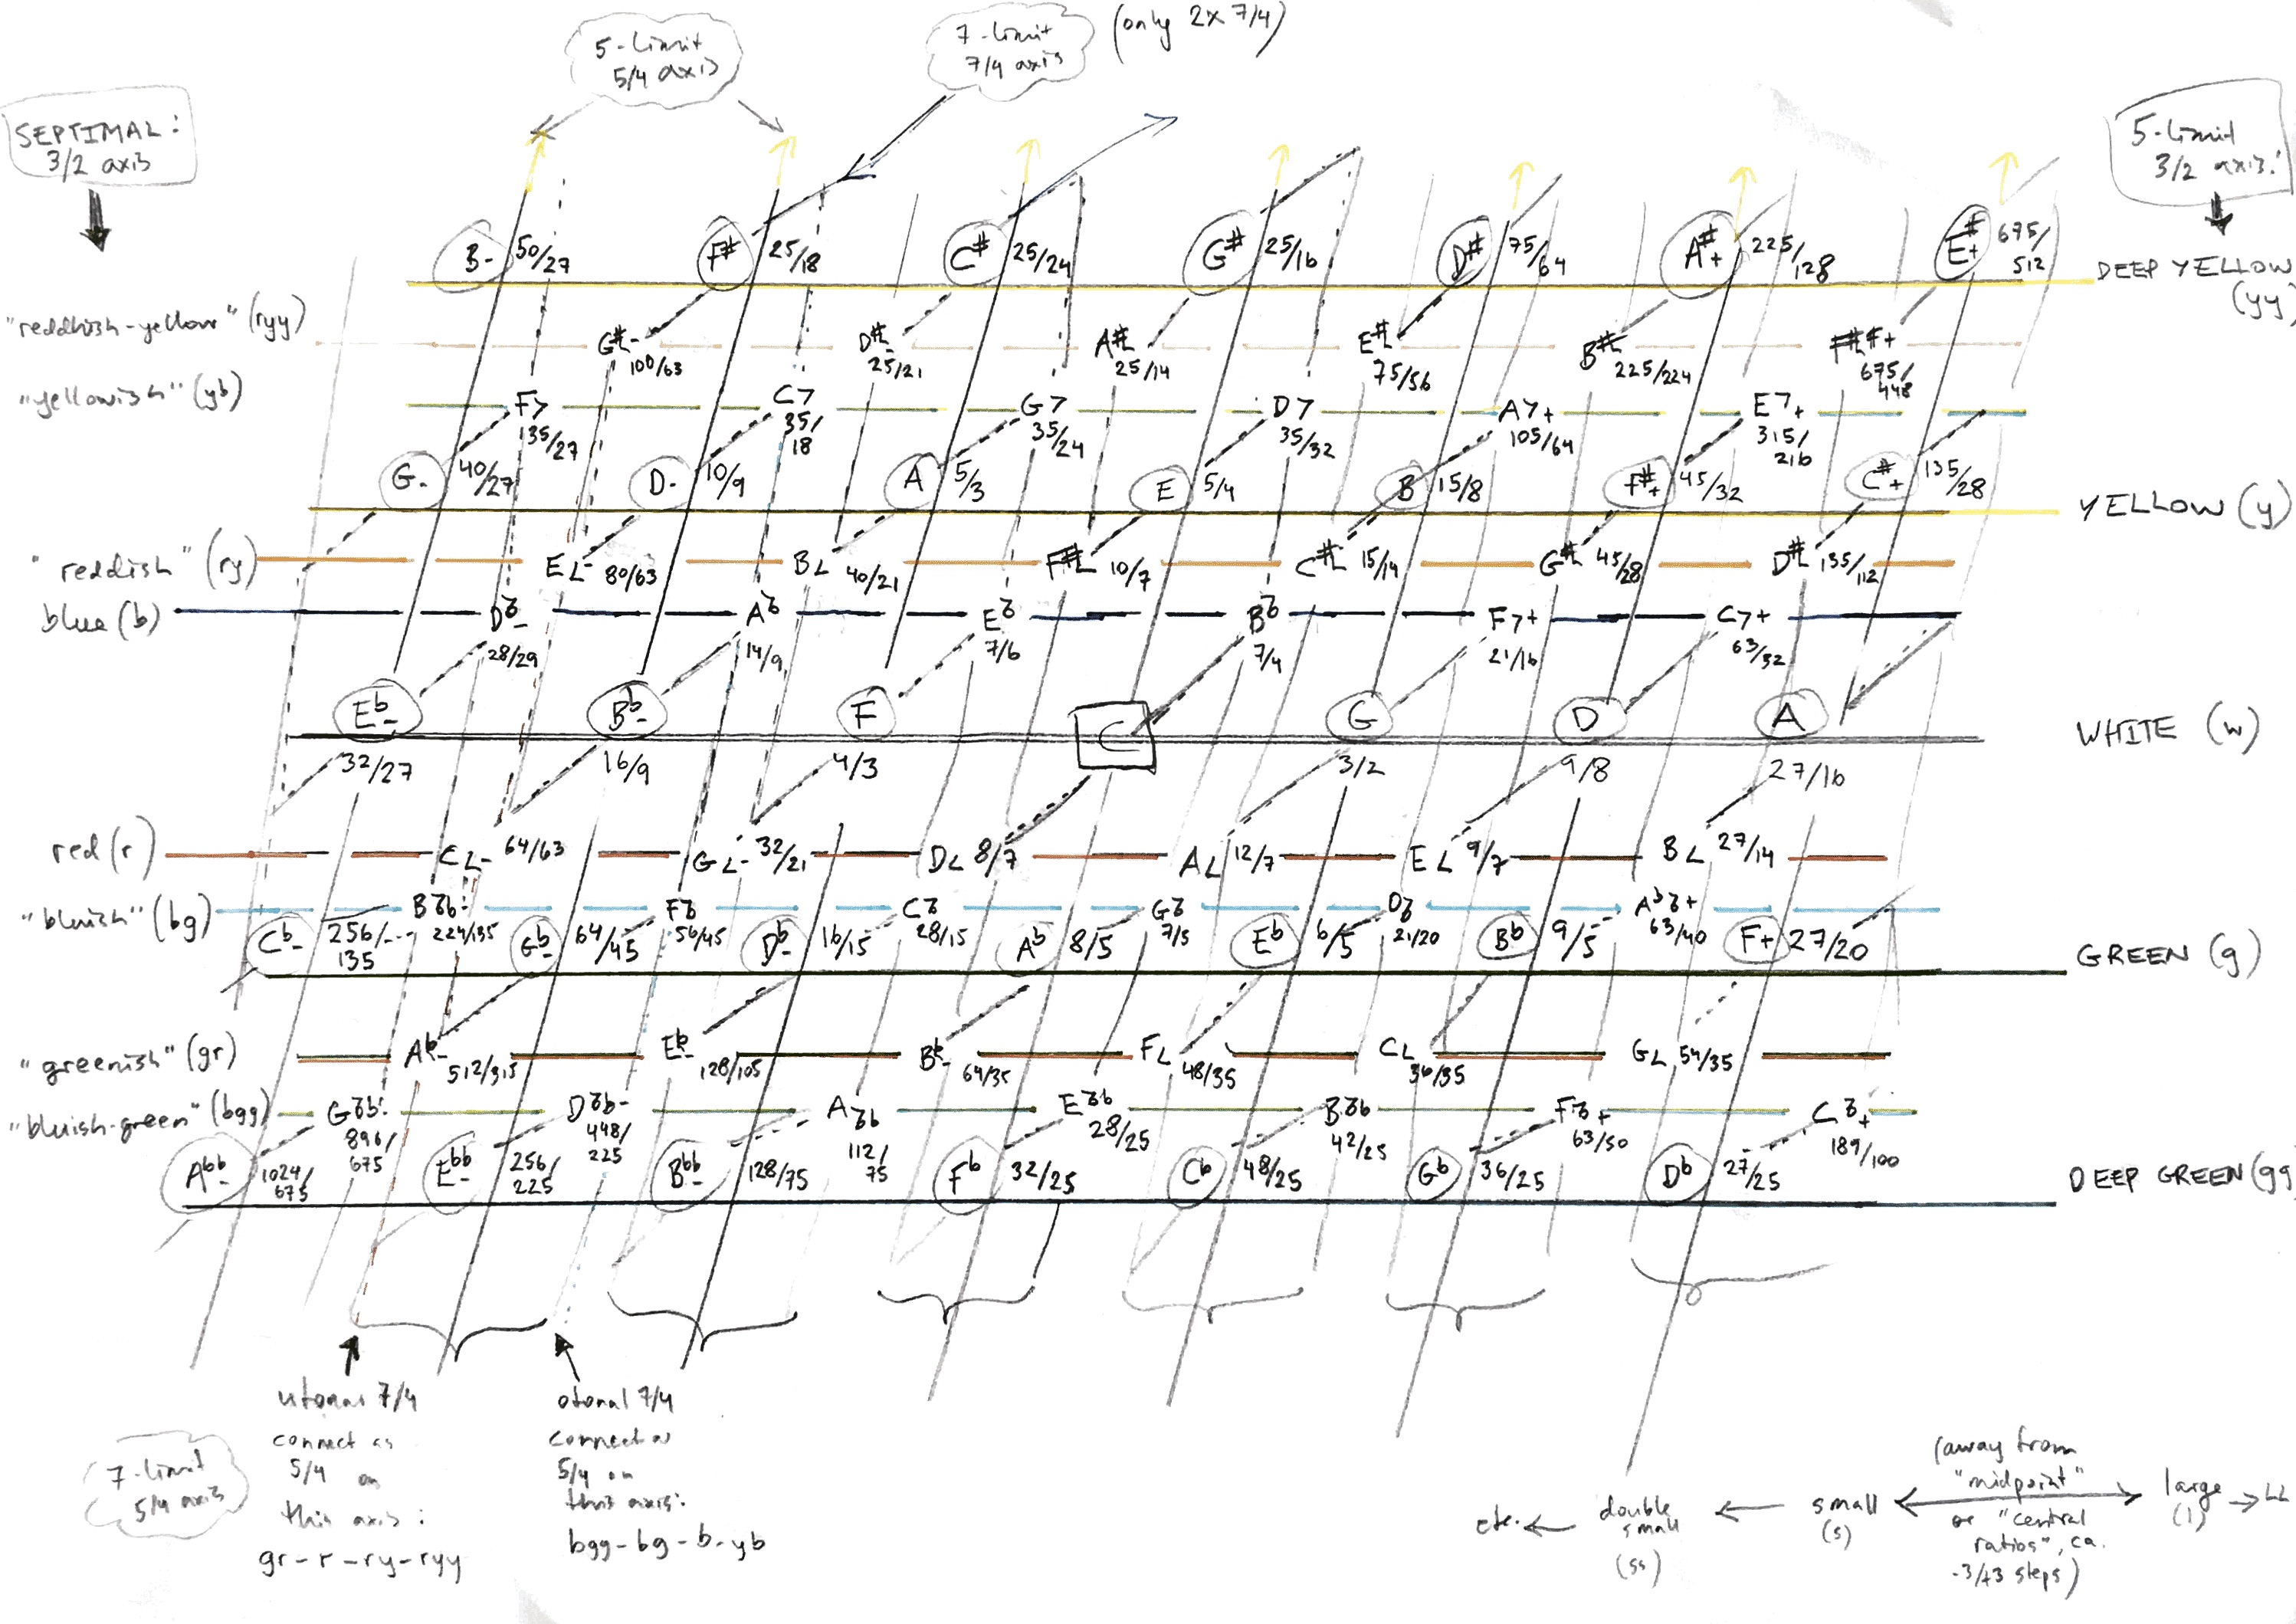 5-limit
5/4 axis
7-limit
7/4 axis
(only 2x 7/4)
SEPTIMAL:
3/2 axis
5-limit
3/2 axis:
B- 50/27 F# 25/18 C# 25/24 G# 25/16 D# 75/64 A#+ 225/128 E#+ 675/512
DEEP YELLOW
(yy)
"reddish-yellow" (ryy)
G#L- 100/63 D#L 25/21 A#L 25/14 E#L 75/56 B#L 225/224 675/448
"yellowish" (yb)
F7 135/27 C7 35/18 G7 35/24 D7 35/32 A7+ 105/64 E7+ 315/216
G- 40/27 D- 10/9 A 5/3 E 5/4 B 15/8 F#+ 45/32 C#+ 135/28
YELLOW (y)
"reddish" (ry)
EL- 80/63 BL 40/21 F#L 10/7 C#L 15/14 G#L 45/28 D#L 135/112
blue (b)
28/29 14/9 7/6 7/4 F7+ 21/16 C7+ 63/32
Eb- Bb- F C G D A
WHITE (w)
32/27 16/9 4/3 3/2 9/8 27/16
red (r)
CL- 64/63 GL- 32/21 DL 8/7 AL 12/7 EL 9/7 BL 27/14
"bluish" (bg)
224/135 56/45 28/15 7/5 21/20 63/40
Cb- 256/135 Gb- 64/45 Db- 16/15 Ab 8/5 Eb 6/5 Bb 9/5 F+ 27/20
GREEN (g)
"greenish" (gr)
512/315 128/105 64/35 FL 48/35 CL 36/35 GL 54/35
"bluish-green" (bgg)
896/675 448/225 112/75 28/25 42/25 63/50 189/100
Abb- 1024/675 Ebb- 256/225 Bbb- 128/75 Fb 32/25 Cb 48/25 Gb 36/25 Db 27/25
DEEP GREEN (gg)
7-limit
5/4 axis
utonal 7/4
connect as
5/4 on
this axis:
gr-r-ry-ryy
otonal 7/4
connect as
5/4 on
this axis:
bgg-bg-b-yb
etc. ← double small (ss) ← small (s) ↔ large (l) → LL
(away from
"midpoint"
or "central
ratios", ca.
-3/+3 steps)